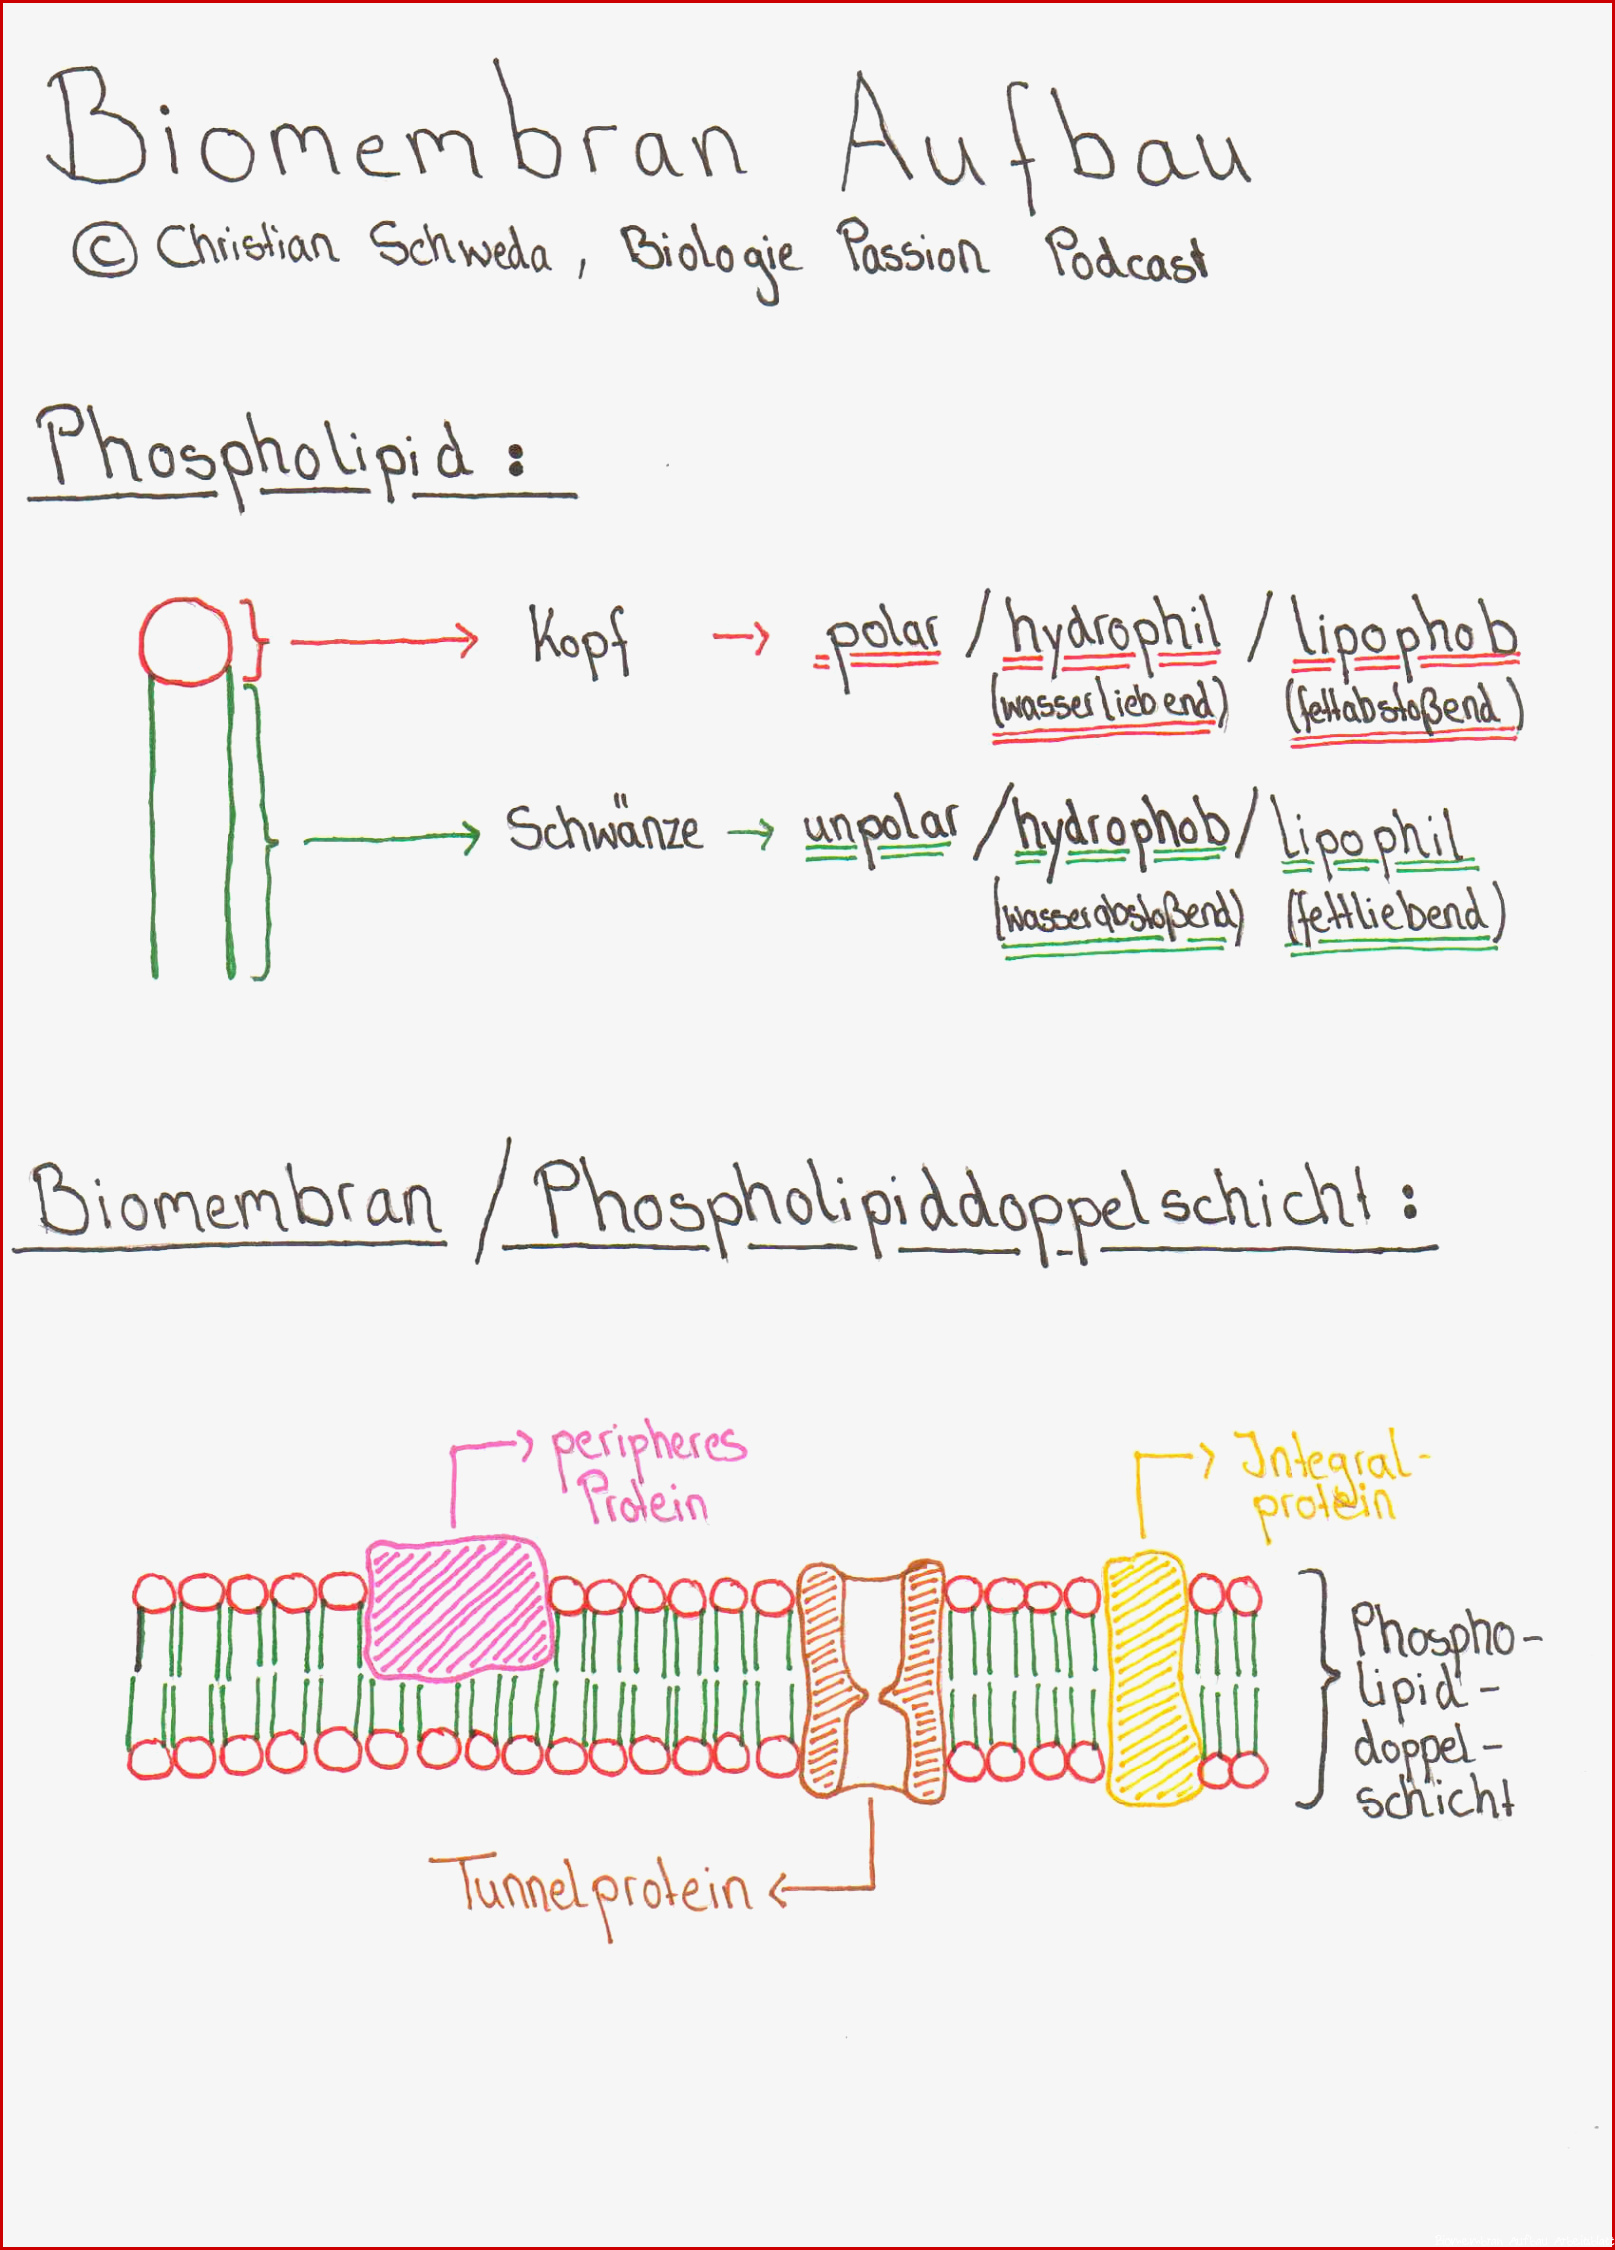 Biomembran Aufbau
© Christian Schweda, Biologie Passion Podcast
Phospholipid:
Kopf → polar / hydrophil / lipophob
(wasserliebend) (fettabstoßend)
Schwänze → unpolar / hydrophob / lipophil
(wasserabstoßend) (fettliebend)
Biomembran / Phospholipiddoppelschicht:
peripheres
Protein
Integral-
protein
Phospho-
lipid-
doppel-
schicht
Tunnelprotein